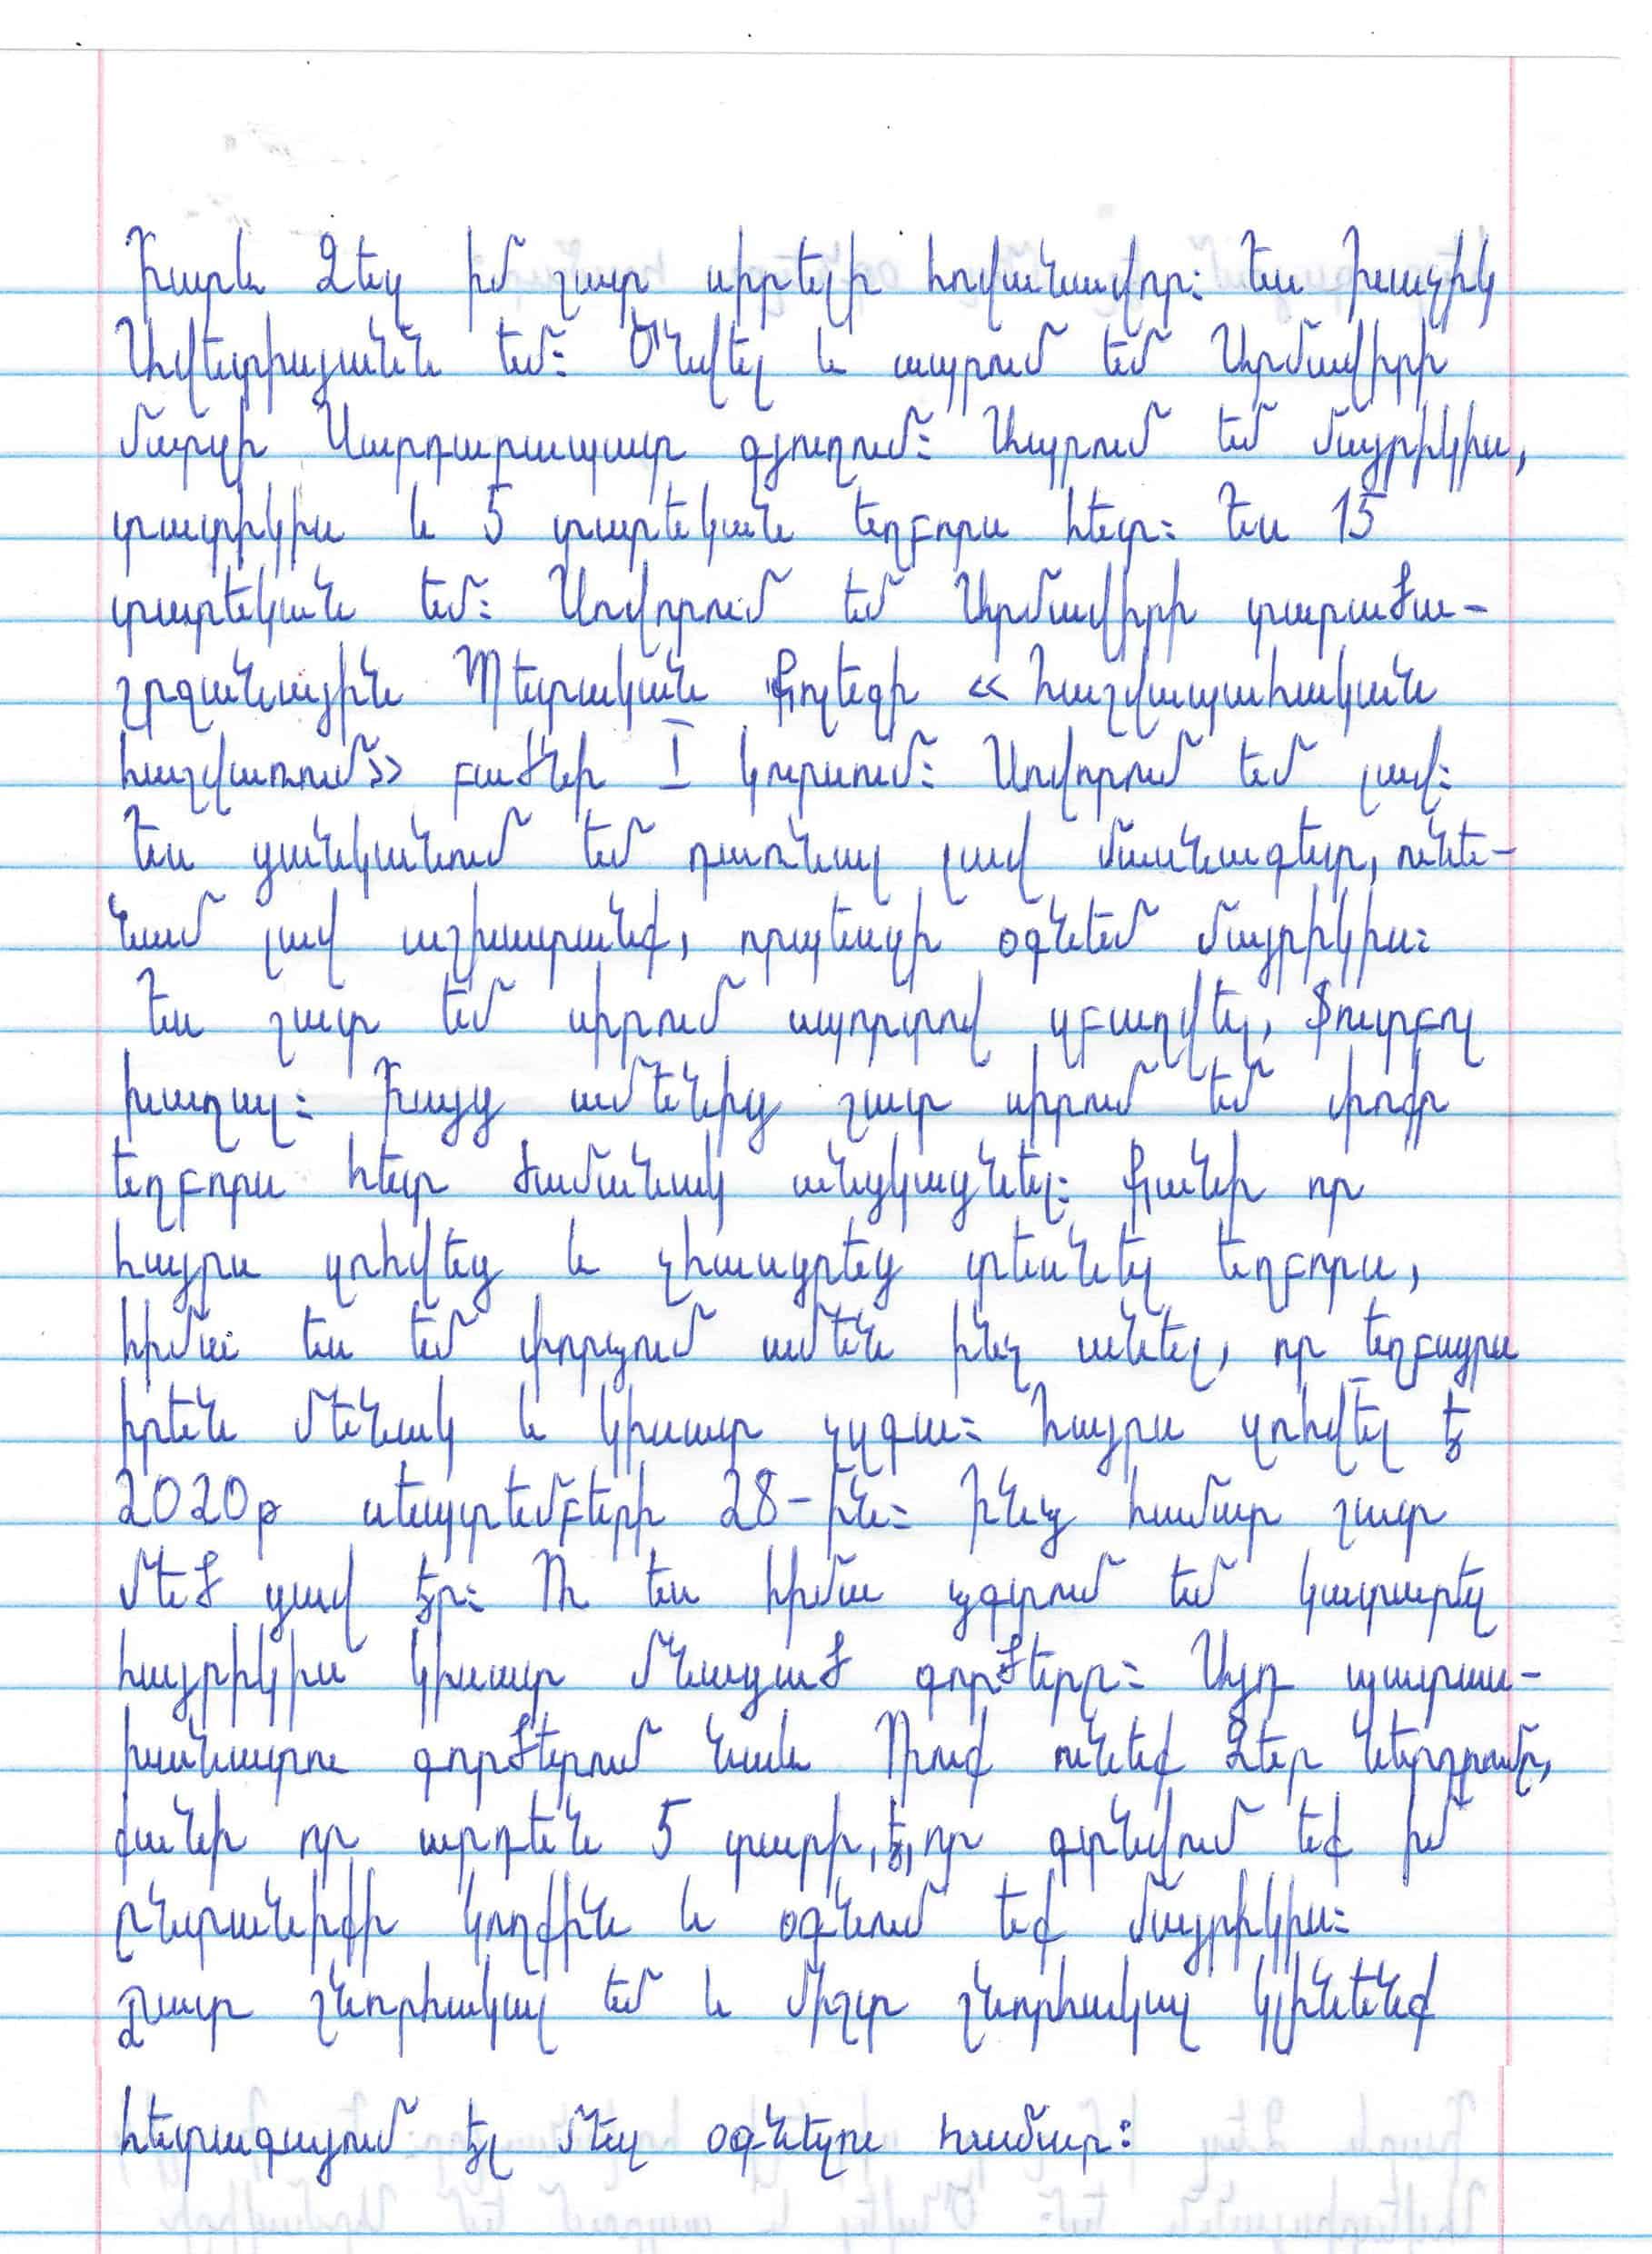 Բարև Ձեզ իմ շատ սիրելի հովանավոր։ Ես Խաչիկ
Ավետիսյանն եմ։ Ծնվել և ապրում եմ Արմավիրի
մարզի Սարդարապատ գյուղում։ Ապրում եմ մայրիկիս,
տատիկիս և 5 տարեկան եղբորս հետ։ Ես 15
տարեկան եմ։ Սովորում եմ Արմավիրի տարածա-
շրջանային Պետական Քոլեջի «Հաշվապահական
հաշվառում» բաժնի I կուրսում։ Սովորում եմ լավ։
Ես ցանկանում եմ դառնալ լավ մասնագետ, ունե-
նամ լավ աշխատանք, որպեսզի օգնեմ մայրիկիս։
Ես շատ եմ սիրում սպորտով զբաղվել, ֆուտբոլ
խաղալ։ Բայց ամենից շատ սիրում եմ փոքր
եղբորս հետ ժամանակ անցկացնել։ Քանի որ
հայրս զոհվեց և չհասցրեց տեսնել եղբորս,
հիմա ես եմ փորձում ամեն ինչ անել, որ եղբայրս
իրեն մենակ և կիսատ չզգա։ Հայրս զոհվել է
2020թ սեպտեմբերի 28-ին։ Ինձ համար շատ
մեծ ցավ էր։ Ու ես հիմա ձգտում եմ կատարել
հայրիկիս կիսատ մնացած գործերը։ Այդ պատաս-
խանատու գործերում նաև Դուք ունեք Ձեր ներդրումը,
քանի որ արդեն 5 տարի է, որ գտնվում եք իմ
ընտանիքի կողքին և օգնում եք մայրիկիս։
Շատ շնորհակալ եմ և միշտ շնորհակալ կլինենք
հետագայում էլ մեզ օգնելու համար։